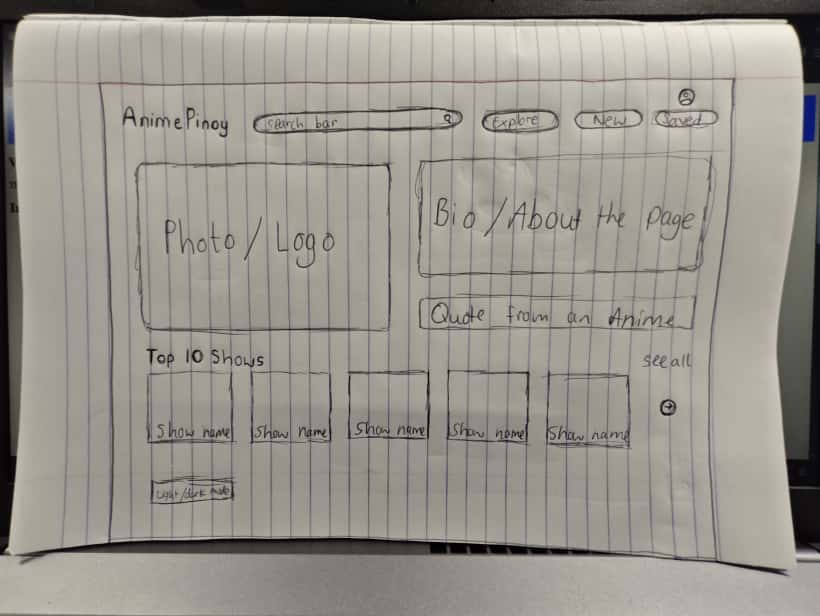 AnimePinoy
search bar
Explore
New
Saved
Photo / Logo
Bio / About the page
Quote from an Anime
Top 10 Shows
see all
Show name
Show name
Show name
Show name
Show name
Light/dark mode